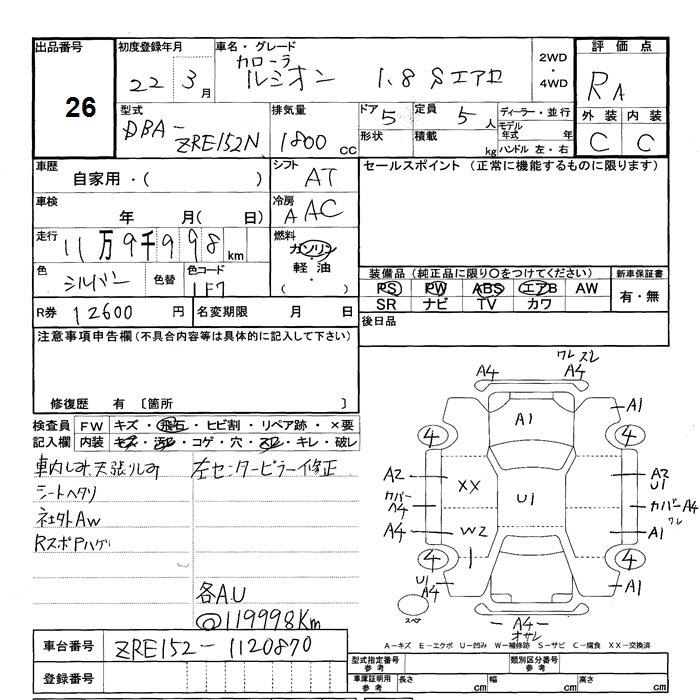 出品番号 初度登録年月 車名・グレード 評価点
26
22年 3月
カローラ
ルミオン 1.8 Sエアロ
2WD
・
4WD
RA
型式 排気量 ドア 5 定員 5人 ディーラー・並行
DBA-
ZRE152N
1800 cc
形状 積載 kg
モデル年式 年
ハンドル 左・右
外装 内装
C C
車歴 自家用・( )
シフト AT
セールスポイント (正常に機能するものに限ります)
車検 年 月( 日)
冷房 A AC
走行 11万9千998km
燃料 ガソリン
軽油
( )
色 シルバー 色替 色コード 1F7
装備品 (純正品に限り○をつけてください) 新車保証書
PS PW ABS エアB AW 有・無
SR ナビ TV カワ
R券 12600円 名変期限 月 日
後日品
注意事項申告欄 (不具合内容等は具体的に記入して下さい)
修復歴 有 〔箇所 〕
検査員 FW キズ・飛石・ヒビ割・リペア跡・×要
記入欄 内装 キズ・汚れ・コゲ・穴・スレ・キレ・破レ
車内しみ 天張りしみ 左センターピラー修正
シートヘタリ
社外AW
RスポPハゲ
各A.U
@119998Km
ワレ スレ
A4 A4
A1 A1
4 4
A2 XX U1 A2
U1
カバー
A4 カバーA4
ワレ
A4 W2 A1
4 1 4
U1
A4 A1
スペア
A4
オサレ
車台番号 ZRE152-1120870
A-キズ E-エクボ U-凹み W-補修跡 S-サビ C-腐食 XX-交換済
登録番号
型式指定番号 参考 類別区分番号 参考
車庫証明用 参考 長さ cm 幅 cm 高さ cm